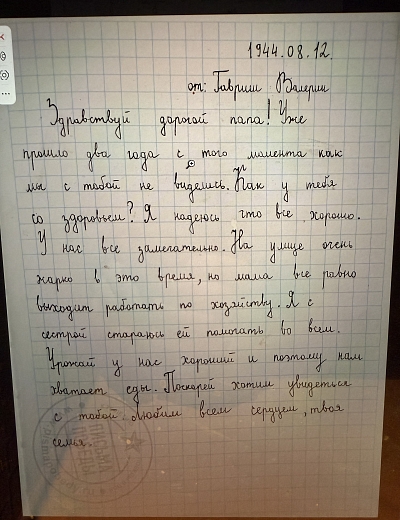 1944.08.12.
от: Гавриш Валерии
Здравствуй дорогой папа! Уже
прошло два года с того момента как
мы с тобой не виделись. Как у тебя
со здоровьем? Я надеюсь что все хорошо.
У нас все замечательно. На улице очень
жарко в это время, но мама все равно
выходит работать по хозяйству. Я с
сестрой стараюсь ей помогать во всем.
Урожай у нас хороший и поэтому нам
хватает еды. Поскорей хотим увидеться
с тобой. Любим всем сердцем, твоя
семья.